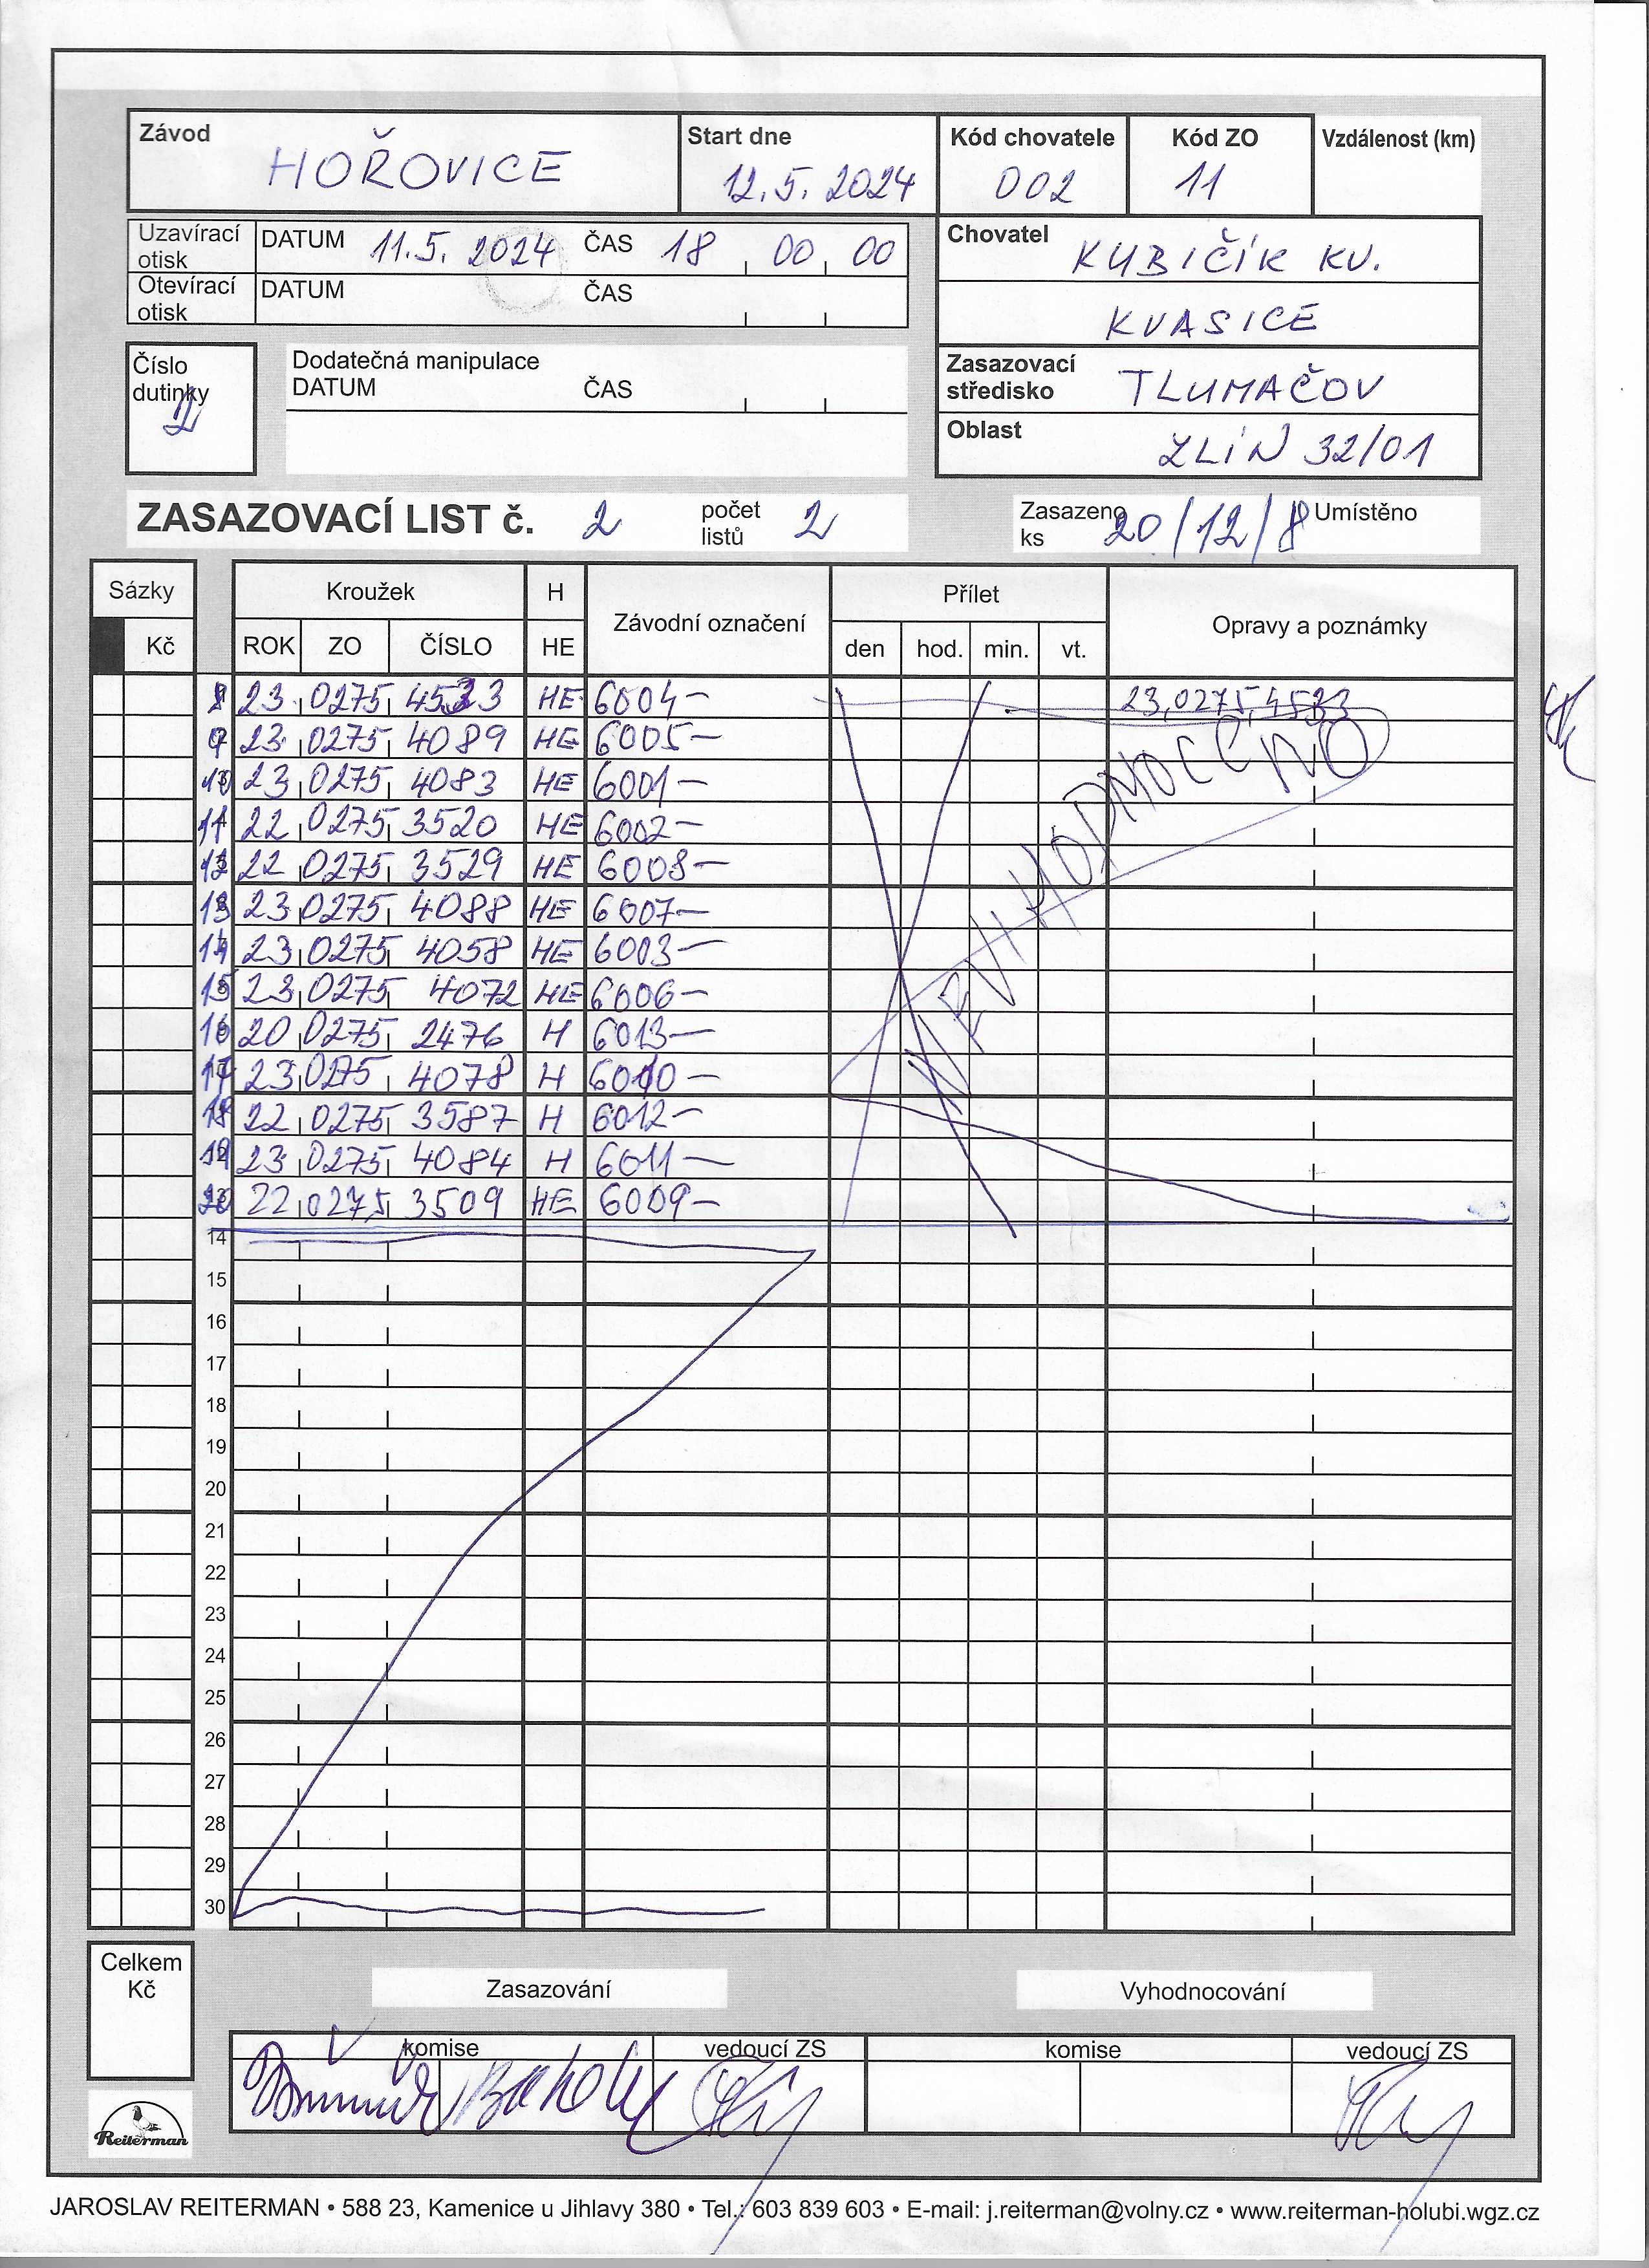 Závod HOŘOVICE
Start dne 12.5.2024
Kód chovatele 002
Kód ZO 11
Vzdálenost (km)
Uzavírací otisk DATUM 11.5.2024 ČAS 18 00 00
Otevírací otisk DATUM ČAS
Chovatel KUBIČÍK KV.
KVASICE
Číslo dutinky
Dodatečná manipulace
DATUM ČAS
Zasazovací středisko TLUMAČOV
Oblast ZLÍN 32/01
ZASAZOVACÍ LIST č. 2 počet listů 2
Zasazeno ks 20/12/8 Umístěno
Sázky Kroužek H Závodní označení Přílet Opravy a poznámky
Kč ROK ZO ČÍSLO HE den hod. min. vt.
8 23 0275 4533 HE 6004- 23,0275,4533
9 23 0275 4089 HE 6005-
10 23 0275 4083 HE 6001-
11 22 0275 3520 HE 6002-
12 22 0275 3529 HE 6008-
13 23 0275 4088 HE 6007-
14 23 0275 4058 HE 6003-
15 23 0275 4072 HE 6006-
16 20 0275 2476 H 6013-
17 23 0275 4078 H 6010-
18 22 0275 3587 H 6012-
19 23 0275 4084 H 6011-
20 22 0275 3509 HE 6009-
14
15
16
17
18
19
20
21
22
23
24
25
26
27
28
29
30
Celkem Kč
Zasazování
Vyhodnocování
komise vedoucí ZS komise vedoucí ZS
Reiterman
JAROSLAV REITERMAN • 588 23, Kamenice u Jihlavy 380 • Tel.: 603 839 603 • E-mail: j.reiterman@volny.cz • www.reiterman-holubi.wgz.cz